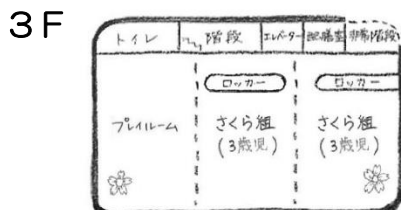 3F
トイレ 階段 エレベーター 配膳室 非常階段
ロッカー ロッカー
プレイルーム さくら組 さくら組
(3歳児) (3歳児)